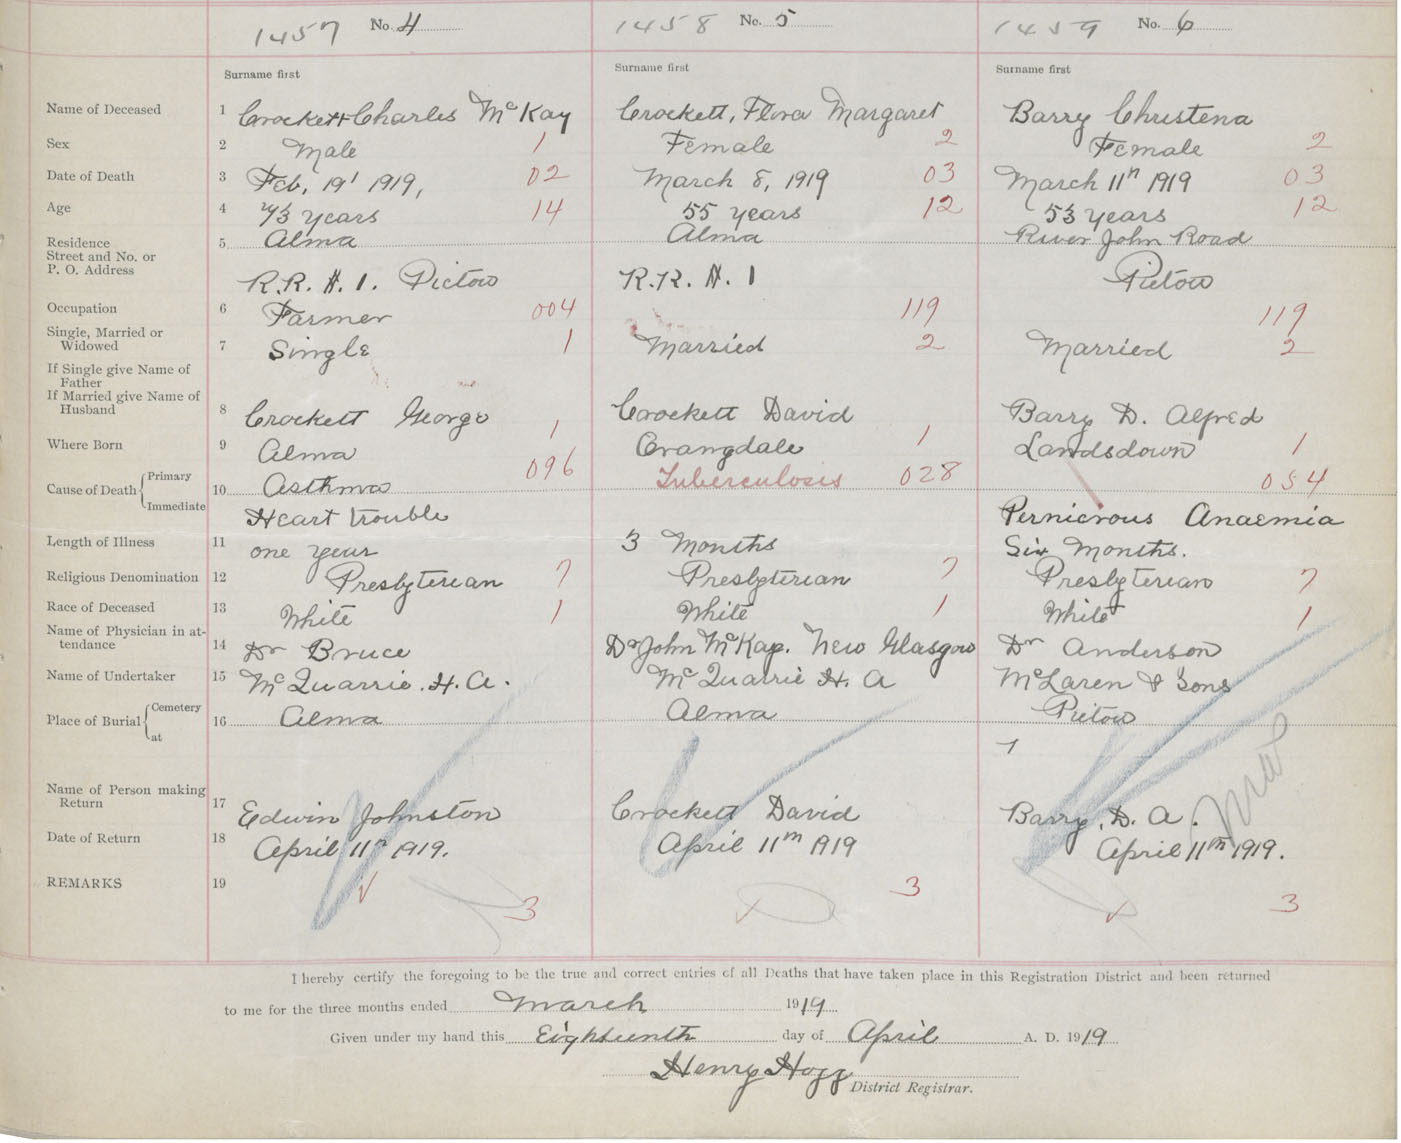 1457 No. 4 1458 No. 5 1459 No. 6
Surname first Surname first Surname first
Name of Deceased 1 Crockett Charles McKay Crockett, Flora Margaret Barry Christena
Sex 2 Male 1 Female 2 Female 2
Date of Death 3 Feb, 19 1919, 02 March 8, 1919 03 March 11th 1919 03
Age 4 73 years 14 55 years 12 53 years 12
Residence 5 Alma Alma River John Road
Street and No. or
P. O. Address R.R. #. 1. Pictou R.R. #. 1 Pictou
Occupation 6 Farmer 004 119 119
Single, Married or
Widowed 7 Single 1 Married 2 Married 2
If Single give Name of
Father
If Married give Name of
Husband 8 Crockett George Crockett David Barry D. Alfred
Where Born 9 Alma 1 Orangdale 1 Landsdown 1
Cause of Death Primary 10 Asthma 096 Tuberculosis 028 054
Immediate Heart trouble Pernicious Anaemia
Length of Illness 11 one year 3 Months Six Months.
Religious Denomination 12 Presbyterian 7 Presbyterian 7 Presbyterian 7
Race of Deceased 13 White 1 White 1 White 1
Name of Physician in at-
tendance 14 Dr Bruce Dr John McKay. New Glasgow Dr Anderson
Name of Undertaker 15 McQuarrie. H. A. McQuarrie H. A McLaren & Sons
Place of Burial Cemetery 16 Alma Alma Pictou
at
Name of Person making
Return 17 Edwin Johnston Crockett David Barry, D. A.
Date of Return 18 April 11th 1919. April 11th 1919 April 11th 1919.
REMARKS 19 3 3 3
I hereby certify the foregoing to be the true and correct entries of all Deaths that have taken place in this Registration District and been returned
to me for the three months ended March 1919
Given under my hand this Eighteenth day of April A. D. 1919
Henry Hogg
District Registrar.